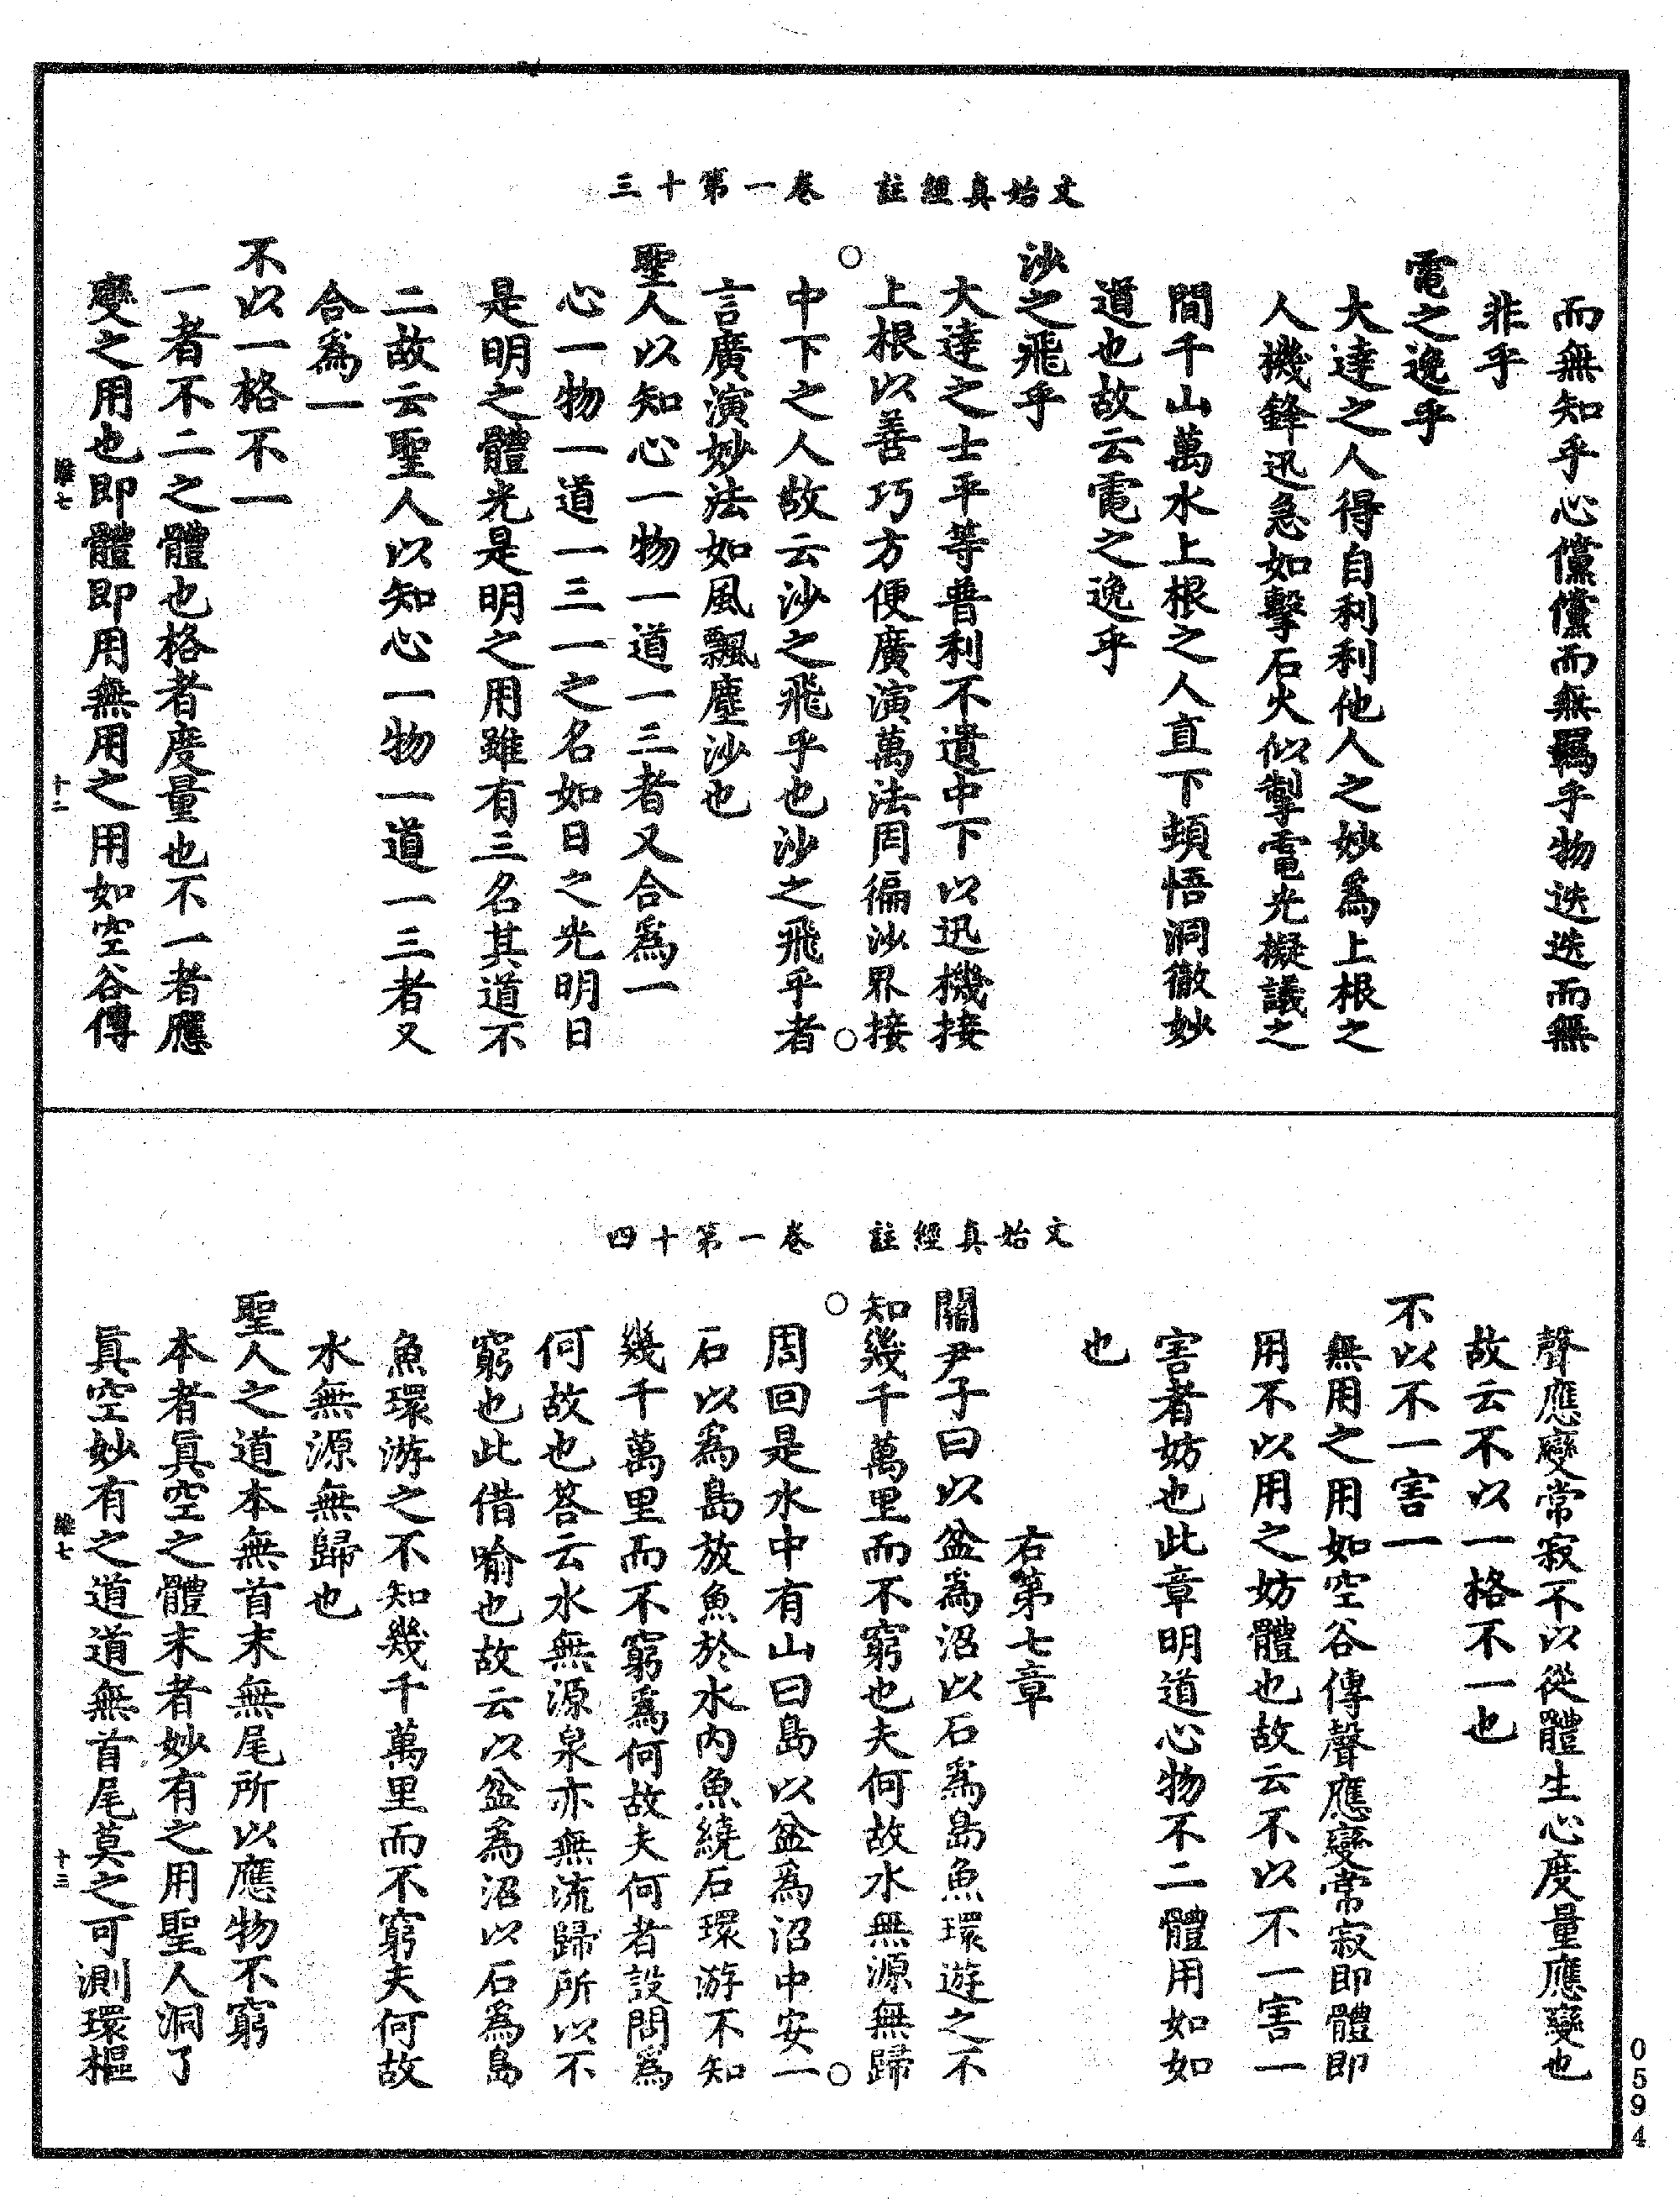 文始真經註　卷一第十三
而無知乎心儻儻而無羈乎物迭迭而無
非乎
電之逸乎
大達之人得自利利他人之妙爲上根之
人機鋒迅急如擊石火似掣電光擬議之
間千山萬水上根之人直下頓悟洞徹妙
道也故云電之逸乎
沙之飛乎
大達之士平等普利不遺中下以迅機接
上根以善巧方便廣演萬法周徧沙界接
中下之人故云沙之飛乎也沙之飛乎者
言廣演妙法如風飄塵沙也
聖人以知心一物一道一三者又合爲一
心一物一道一三一之名如日之光明日
是明之體光是明之用雖有三名其道不
二故云聖人以知心一物一道一三者又
合爲一
不以一格不一
一者不二之體也格者度量也不一者應
變之用也即體即用無用之用如空谷傳
維七
十二
文始真經註　卷一第十四
聲應變常寂不以從體生心度量應變也
故云不以一格不一也
不以不一害一
無用之用如空谷傳聲應變常寂即體即
用不以用之妨體也故云不以不一害一
害者妨也此章明道心物不二體用如如
也
右第七章
關尹子曰以盆爲沼以石爲島魚環遊之不
知幾千萬里而不窮也夫何故水無源無歸
周回是水中有山曰島以盆爲沼中安一
石以爲島放魚於水內魚繞石環游不知
幾千萬里而不窮爲何故夫何者設問爲
何故也荅云水無源泉亦無流歸所以不
窮也此借喻也故云以盆爲沼以石爲島
魚環游之不知幾千萬里而不窮夫何故
水無源無歸也
聖人之道本無首末無尾所以應物不窮
本者眞空之體末者妙有之用聖人洞了
眞空妙有之道道無首尾莫之可測環樞
維七
十三
0594